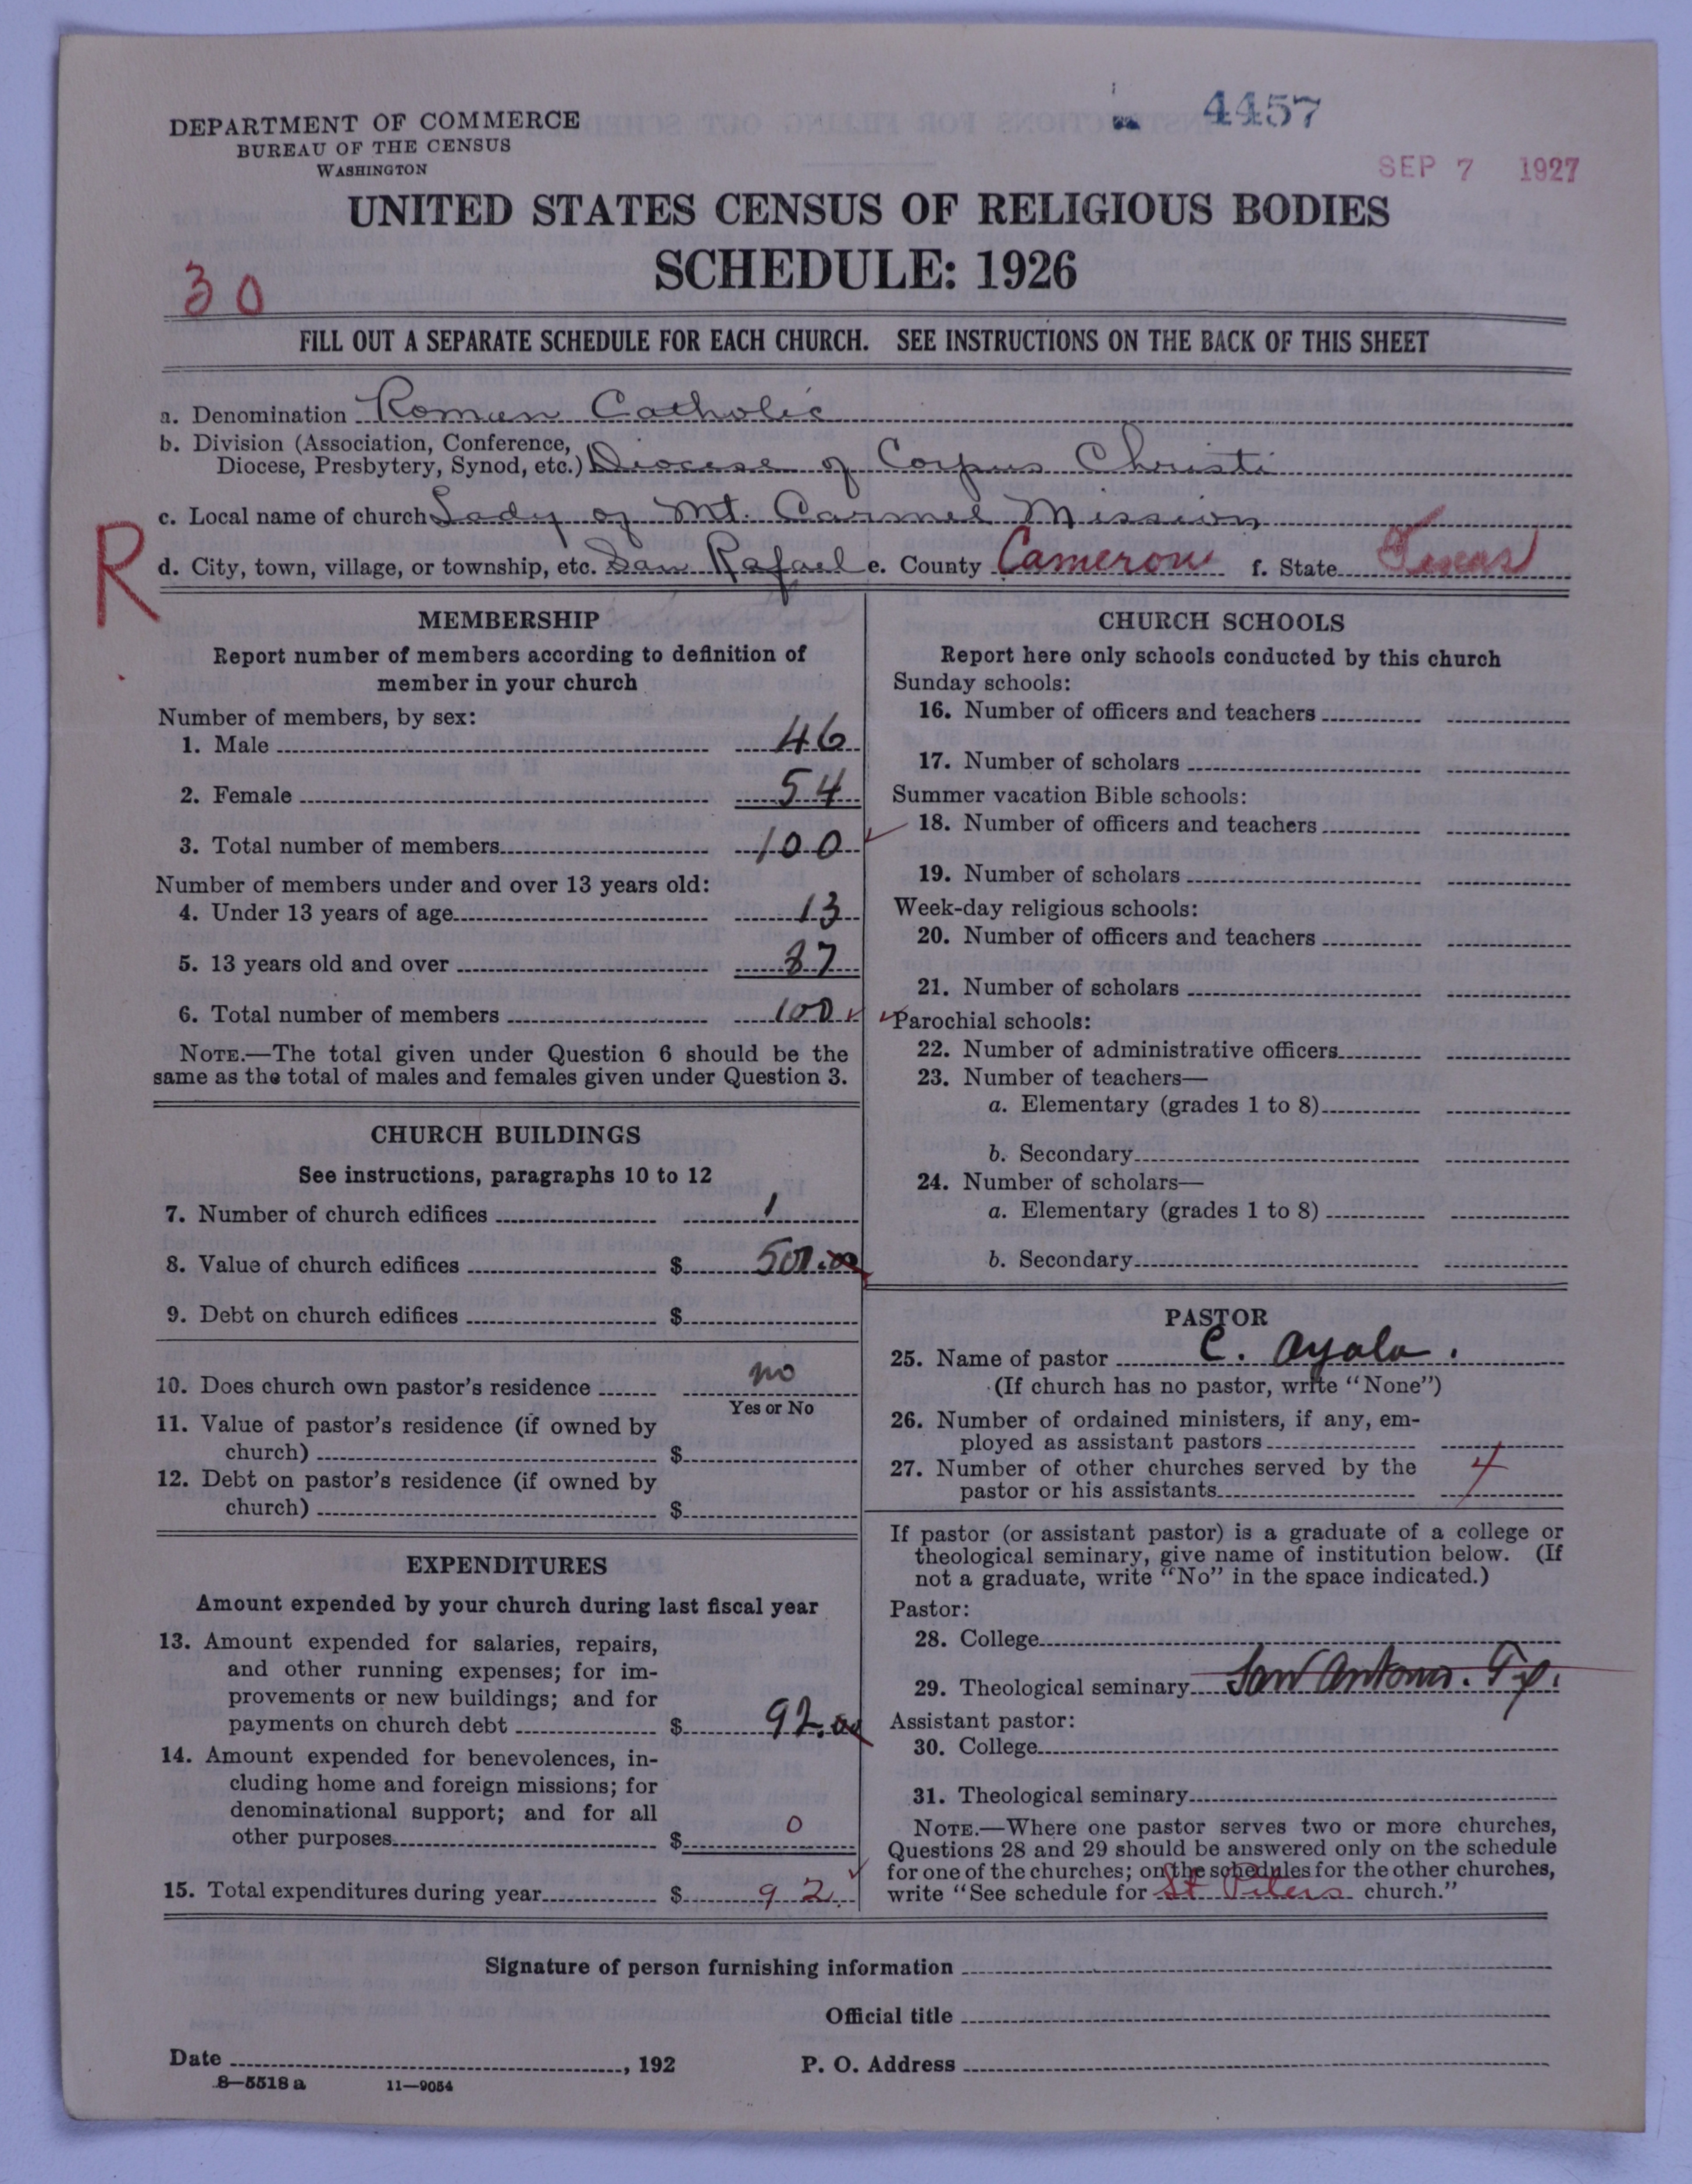 4457
SEP 7 1927
DEPARTMENT OF COMMERCE
BUREAU OF THE CENSUS
WASHINGTON
UNITED STATES CENSUS OF RELIGIOUS BODIES
SCHEDULE: 1926
30
FILL OUT A SEPARATE SCHEDULE FOR EACH CHURCH. SEE INSTRUCTIONS ON THE BACK OF THIS SHEET
a. Denomination Roman Catholic
b. Division (Association, Conference,
Diocese, Presbytery, Synod, etc.) Diocese of Corpus Christi
c. Local name of church Lady of Mt. Carmel Mission
R
d. City, town, village, or township, etc. San Rafael e. County Cameron f. State Texas
MEMBERSHIP
Report number of members according to definition of
member in your church
Number of members, by sex:
1. Male 46
2. Female 54
3. Total number of members 100
Number of members under and over 13 years old:
4. Under 13 years of age 13
5. 13 years old and over 87
6. Total number of members 100
NOTE.—The total given under Question 6 should be the
same as the total of males and females given under Question 3.
CHURCH BUILDINGS
See instructions, paragraphs 10 to 12
7. Number of church edifices 1
8. Value of church edifices $ 500.00
9. Debt on church edifices $
10. Does church own pastor's residence no
Yes or No
11. Value of pastor's residence (if owned by
church) $
12. Debt on pastor's residence (if owned by
church) $
EXPENDITURES
Amount expended by your church during last fiscal year
13. Amount expended for salaries, repairs,
and other running expenses; for im-
provements or new buildings; and for
payments on church debt $ 92.00
14. Amount expended for benevolences, in-
cluding home and foreign missions; for
denominational support; and for all
other purposes $ 0
15. Total expenditures during year $ 92.
CHURCH SCHOOLS
Report here only schools conducted by this church
Sunday schools:
16. Number of officers and teachers
17. Number of scholars
Summer vacation Bible schools:
18. Number of officers and teachers
19. Number of scholars
Week-day religious schools:
20. Number of officers and teachers
21. Number of scholars
Parochial schools:
22. Number of administrative officers
23. Number of teachers—
a. Elementary (grades 1 to 8)
b. Secondary
24. Number of scholars—
a. Elementary (grades 1 to 8)
b. Secondary
PASTOR
25. Name of pastor C. Ayala.
(If church has no pastor, write "None")
26. Number of ordained ministers, if any, em-
ployed as assistant pastors
27. Number of other churches served by the
pastor or his assistants 4
If pastor (or assistant pastor) is a graduate of a college or
theological seminary, give name of institution below. (If
not a graduate, write "No" in the space indicated.)
Pastor:
28. College
29. Theological seminary San Antonio. Tx.
Assistant pastor:
30. College
31. Theological seminary
NOTE.—Where one pastor serves two or more churches,
Questions 28 and 29 should be answered only on the schedule
for one of the churches; on the schedules for the other churches,
write "See schedule for St Peters church."
Signature of person furnishing information
Official title
Date , 192
P. O. Address
8—5518 a 11—9054